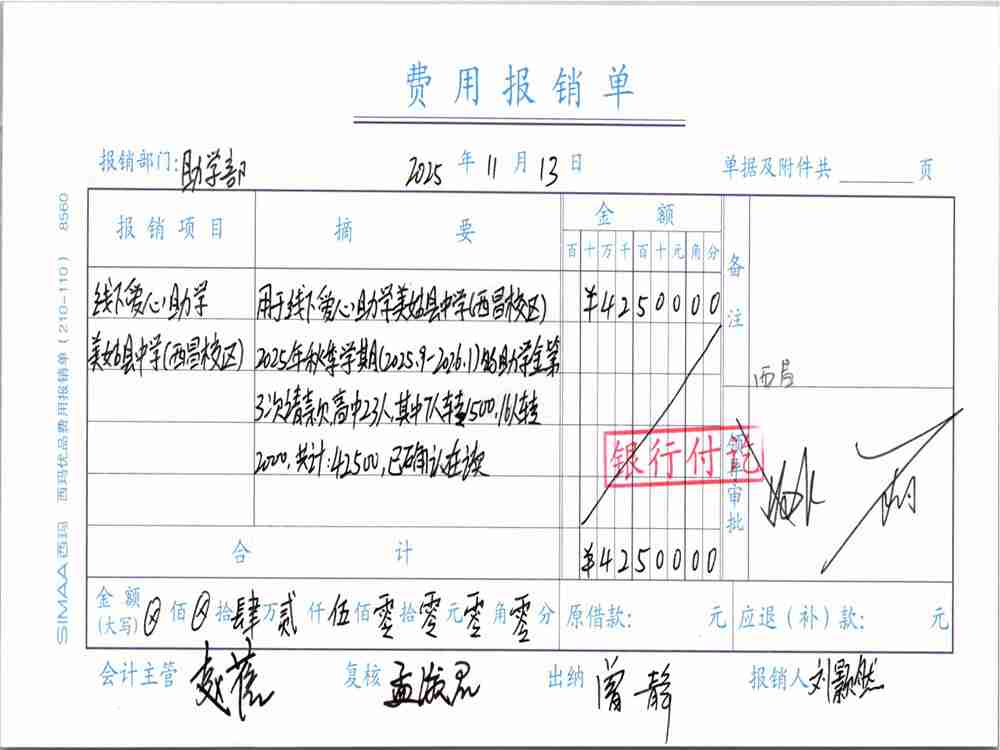 费用报销单
报销部门:助学部 2025年11月13日 单据及附件共 页
报销项目 摘要 金额 备注
百十万千百十元角分
线下爱心助学 用于线下爱心助学美姑县中学(西昌校区) ¥4250000
美姑县中学(西昌校区) 2025年秋季学期(2025.9-2026.1)的助学金第
3次请款,高中23人,其中7人转1500,16人转
2000,共计:42500,已确认在读
西昌
银行付讫
领导审批
合计 ¥4250000
金额(大写)⊗佰⊗拾肆万贰仟伍佰零拾零元零角零分 原借款: 元 应退(补)款: 元
会计主管 复核 出纳 曾静 报销人 刘颢然
SIMAA西玛 西玛优品费用报销单(210-110) 8560